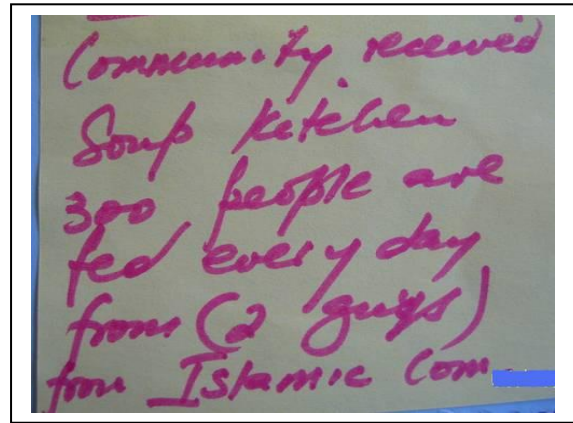 Community received
Soup Kitchen
300 people are
fed every day
from (2 guys)
from Islamic Com